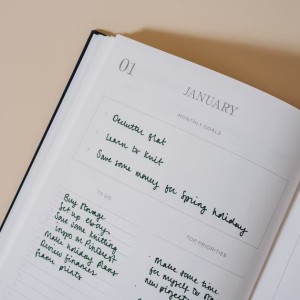 01
JANUARY
MONTHLY GOALS
Declutter flat
Learn to knit
Save some money for Spring holiday
TO DO
Buy storage
Set up
Save some knitting
inspo on Pinterest
Make holiday plans
Review finances
from
TOP PRIORITIES
Make some time
for myself to
new